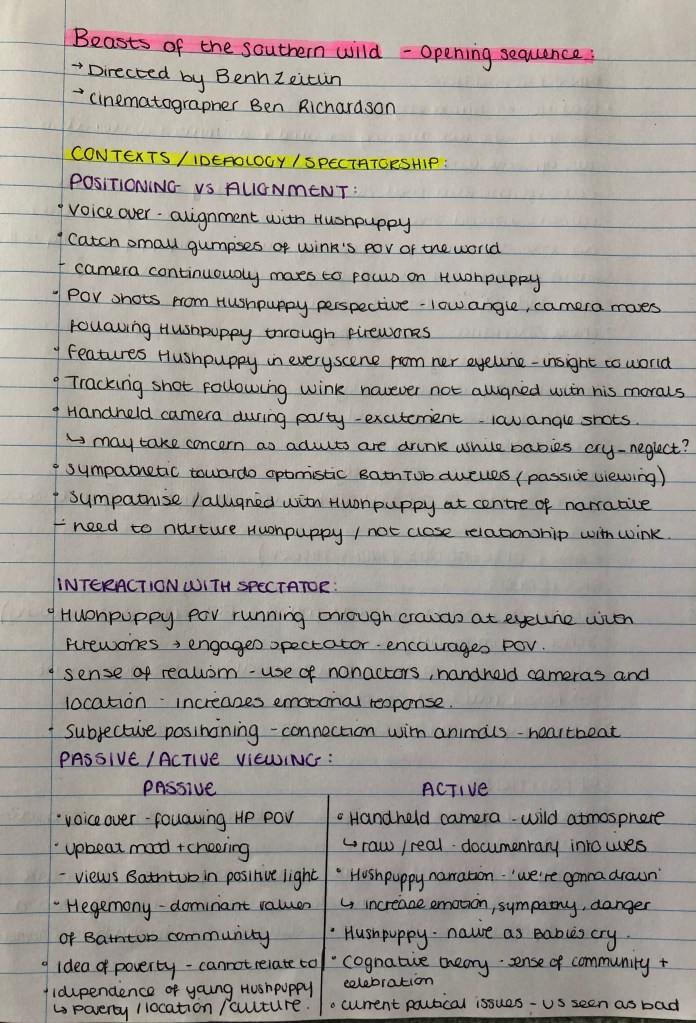 Beasts of the southern wild - Opening sequence:
→ Directed by Benh Zeitlin
→ cinematographer Ben Richardson
CONTEXTS / IDEOLOGY / SPECTATORSHIP:
POSITIONING VS ALIGNMENT:
• Voice over - alignment with Hushpuppy
• Catch small glimpses of wink's POV of the world
- camera continuously moves to focus on Hushpuppy
• POV shots from Hushpuppy perspective - low angle, camera moves
following Hushpuppy through fireworks
• Features Hushpuppy in every scene from her eyeline - insight to world
• Tracking shot following wink however not alligned with his morals
• Handheld camera during party - excitement - low angle shots.
↳ may take concern as adults are drunk while babies cry - neglect?
• sympathetic towards optimistic BathTub dwellers (passive viewing)
• sympathise / alligned with Hushpuppy at centre of narrative
- need to nurture Hushpuppy / not close relationship with wink.
INTERACTION WITH SPECTATOR:
• Hushpuppy POV running through crowds at eyeline with
fireworks → engages spectator - encourages POV.
• sense of realism - use of nonactors, handheld cameras and
location - increases emotional response.
• Subjective positioning - connection with animals - heartbeat
PASSIVE / ACTIVE VIEWING:
PASSIVE
• voice over - following HP POV
• upbeat mood + cheering
- views Bathtub in positive light
• Hegemony - dominant values
of Bathtub community
• idea of poverty - cannot relate to
• idipendence of young Hushpuppy
↳ poverty / location / culture.
ACTIVE
• Handheld camera - wild atmosphere
↳ raw / real - documentary into lives
• Hushpuppy narration - 'we're gonna drown'
↳ increase emotion, sympathy, danger
• Hushpuppy - naive as Babies cry.
• Cognative theory - sense of community +
celebration
• current political issues - US seen as bad